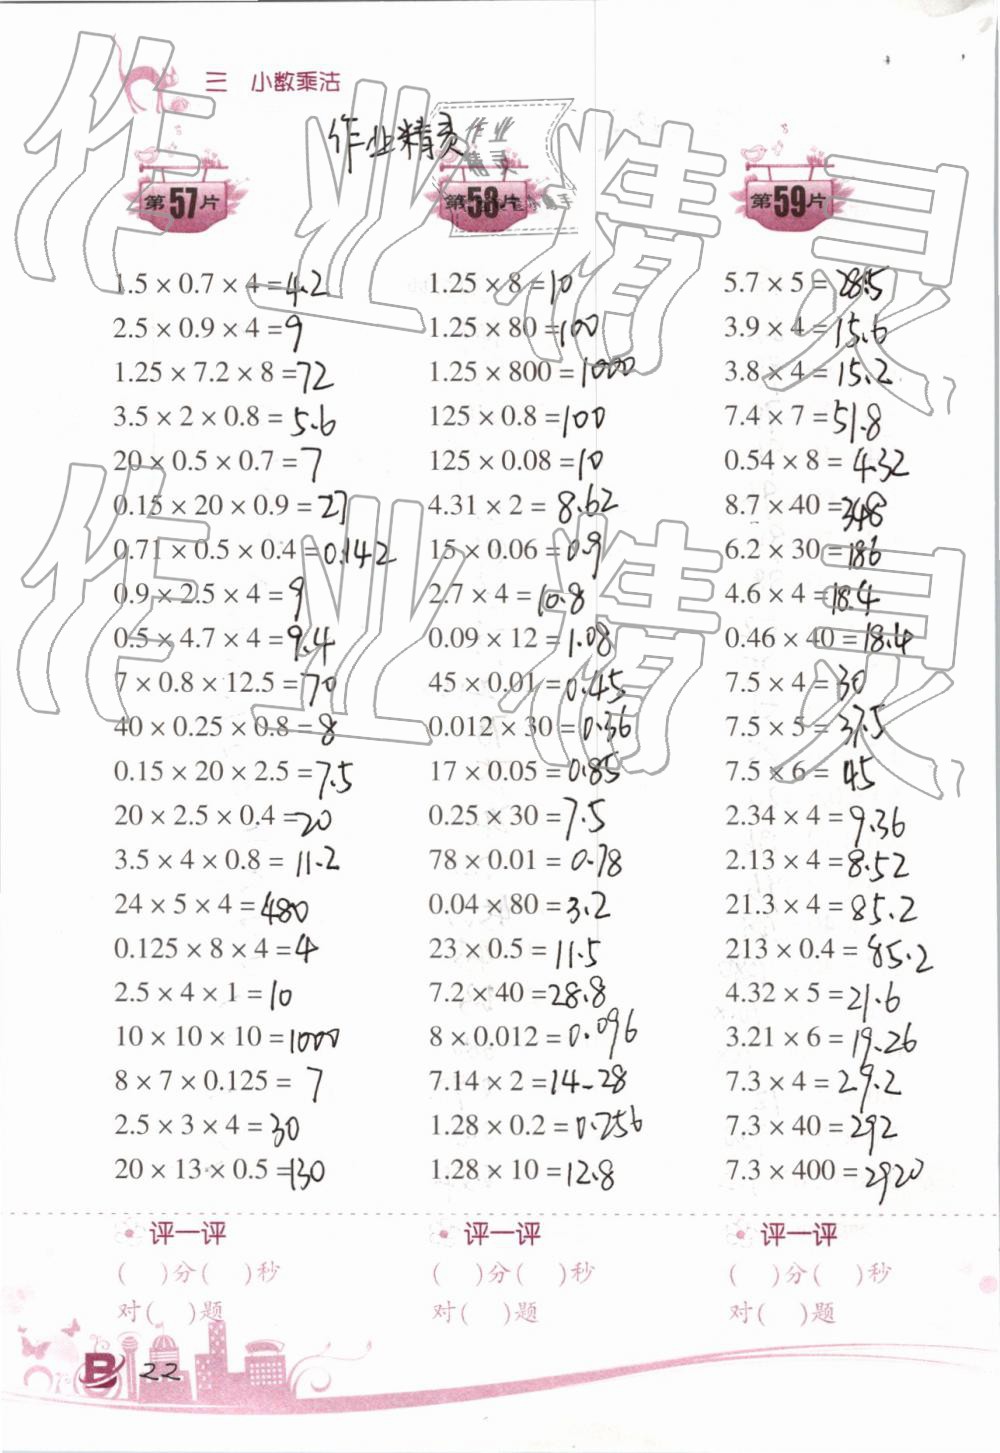 三 小数乘法
作业精灵
作业
精灵
第57片
1.5 × 0.7 × 4 = 4.2
2.5 × 0.9 × 4 = 9
1.25 × 7.2 × 8 = 72
3.5 × 2 × 0.8 = 5.6
20 × 0.5 × 0.7 = 7
0.15 × 20 × 0.9 = 27
0.71 × 0.5 × 0.4 = 0.142
0.9 × 2.5 × 4 = 9
0.5 × 4.7 × 4 = 9.4
7 × 0.8 × 12.5 = 70
40 × 0.25 × 0.8 = 8
0.15 × 20 × 2.5 = 7.5
20 × 2.5 × 0.4 = 20
3.5 × 4 × 0.8 = 11.2
24 × 5 × 4 = 480
0.125 × 8 × 4 = 4
2.5 × 4 × 1 = 10
10 × 10 × 10 = 1000
8 × 7 × 0.125 = 7
2.5 × 3 × 4 = 30
20 × 13 × 0.5 = 130
评一评
( )分( )秒
对( )题
第58片
1.25 × 8 = 10
1.25 × 80 = 100
1.25 × 800 = 1000
125 × 0.8 = 100
125 × 0.08 = 10
4.31 × 2 = 8.62
15 × 0.06 = 0.9
2.7 × 4 = 10.8
0.09 × 12 = 1.08
45 × 0.01 = 0.45
0.012 × 30 = 0.36
17 × 0.05 = 0.85
0.25 × 30 = 7.5
78 × 0.01 = 0.78
0.04 × 80 = 3.2
23 × 0.5 = 11.5
7.2 × 40 = 28.8
8 × 0.012 = 0.096
7.14 × 2 = 14.28
1.28 × 0.2 = 0.256
1.28 × 10 = 12.8
评一评
( )分( )秒
对( )题
第59片
5.7 × 5 = 28.5
3.9 × 4 = 15.6
3.8 × 4 = 15.2
7.4 × 7 = 51.8
0.54 × 8 = 4.32
8.7 × 40 = 348
6.2 × 30 = 186
4.6 × 4 = 18.4
0.46 × 40 = 18.4
7.5 × 4 = 30
7.5 × 5 = 37.5
7.5 × 6 = 45
2.34 × 4 = 9.36
2.13 × 4 = 8.52
21.3 × 4 = 85.2
213 × 0.4 = 85.2
4.32 × 5 = 21.6
3.21 × 6 = 19.26
7.3 × 4 = 29.2
7.3 × 40 = 292
7.3 × 400 = 2920
评一评
( )分( )秒
对( )题
B 22
作业精灵
作业精灵